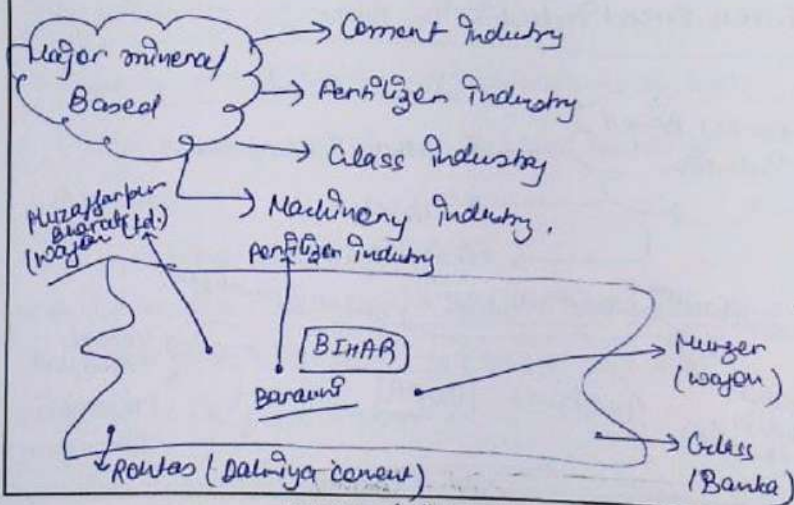 Major mineral
Based
→ Cement industry
→ Fertilizer industry
→ Glass industry
→ Machinery industry.
Muzaffarpur
Bharat (Ltd.)
(Wagon
Fertilizer industry
BIHAR
Barauni
→ Munger
(wagon)
→ Glass
(Banka)
Rohtas (Dalmiya cement)